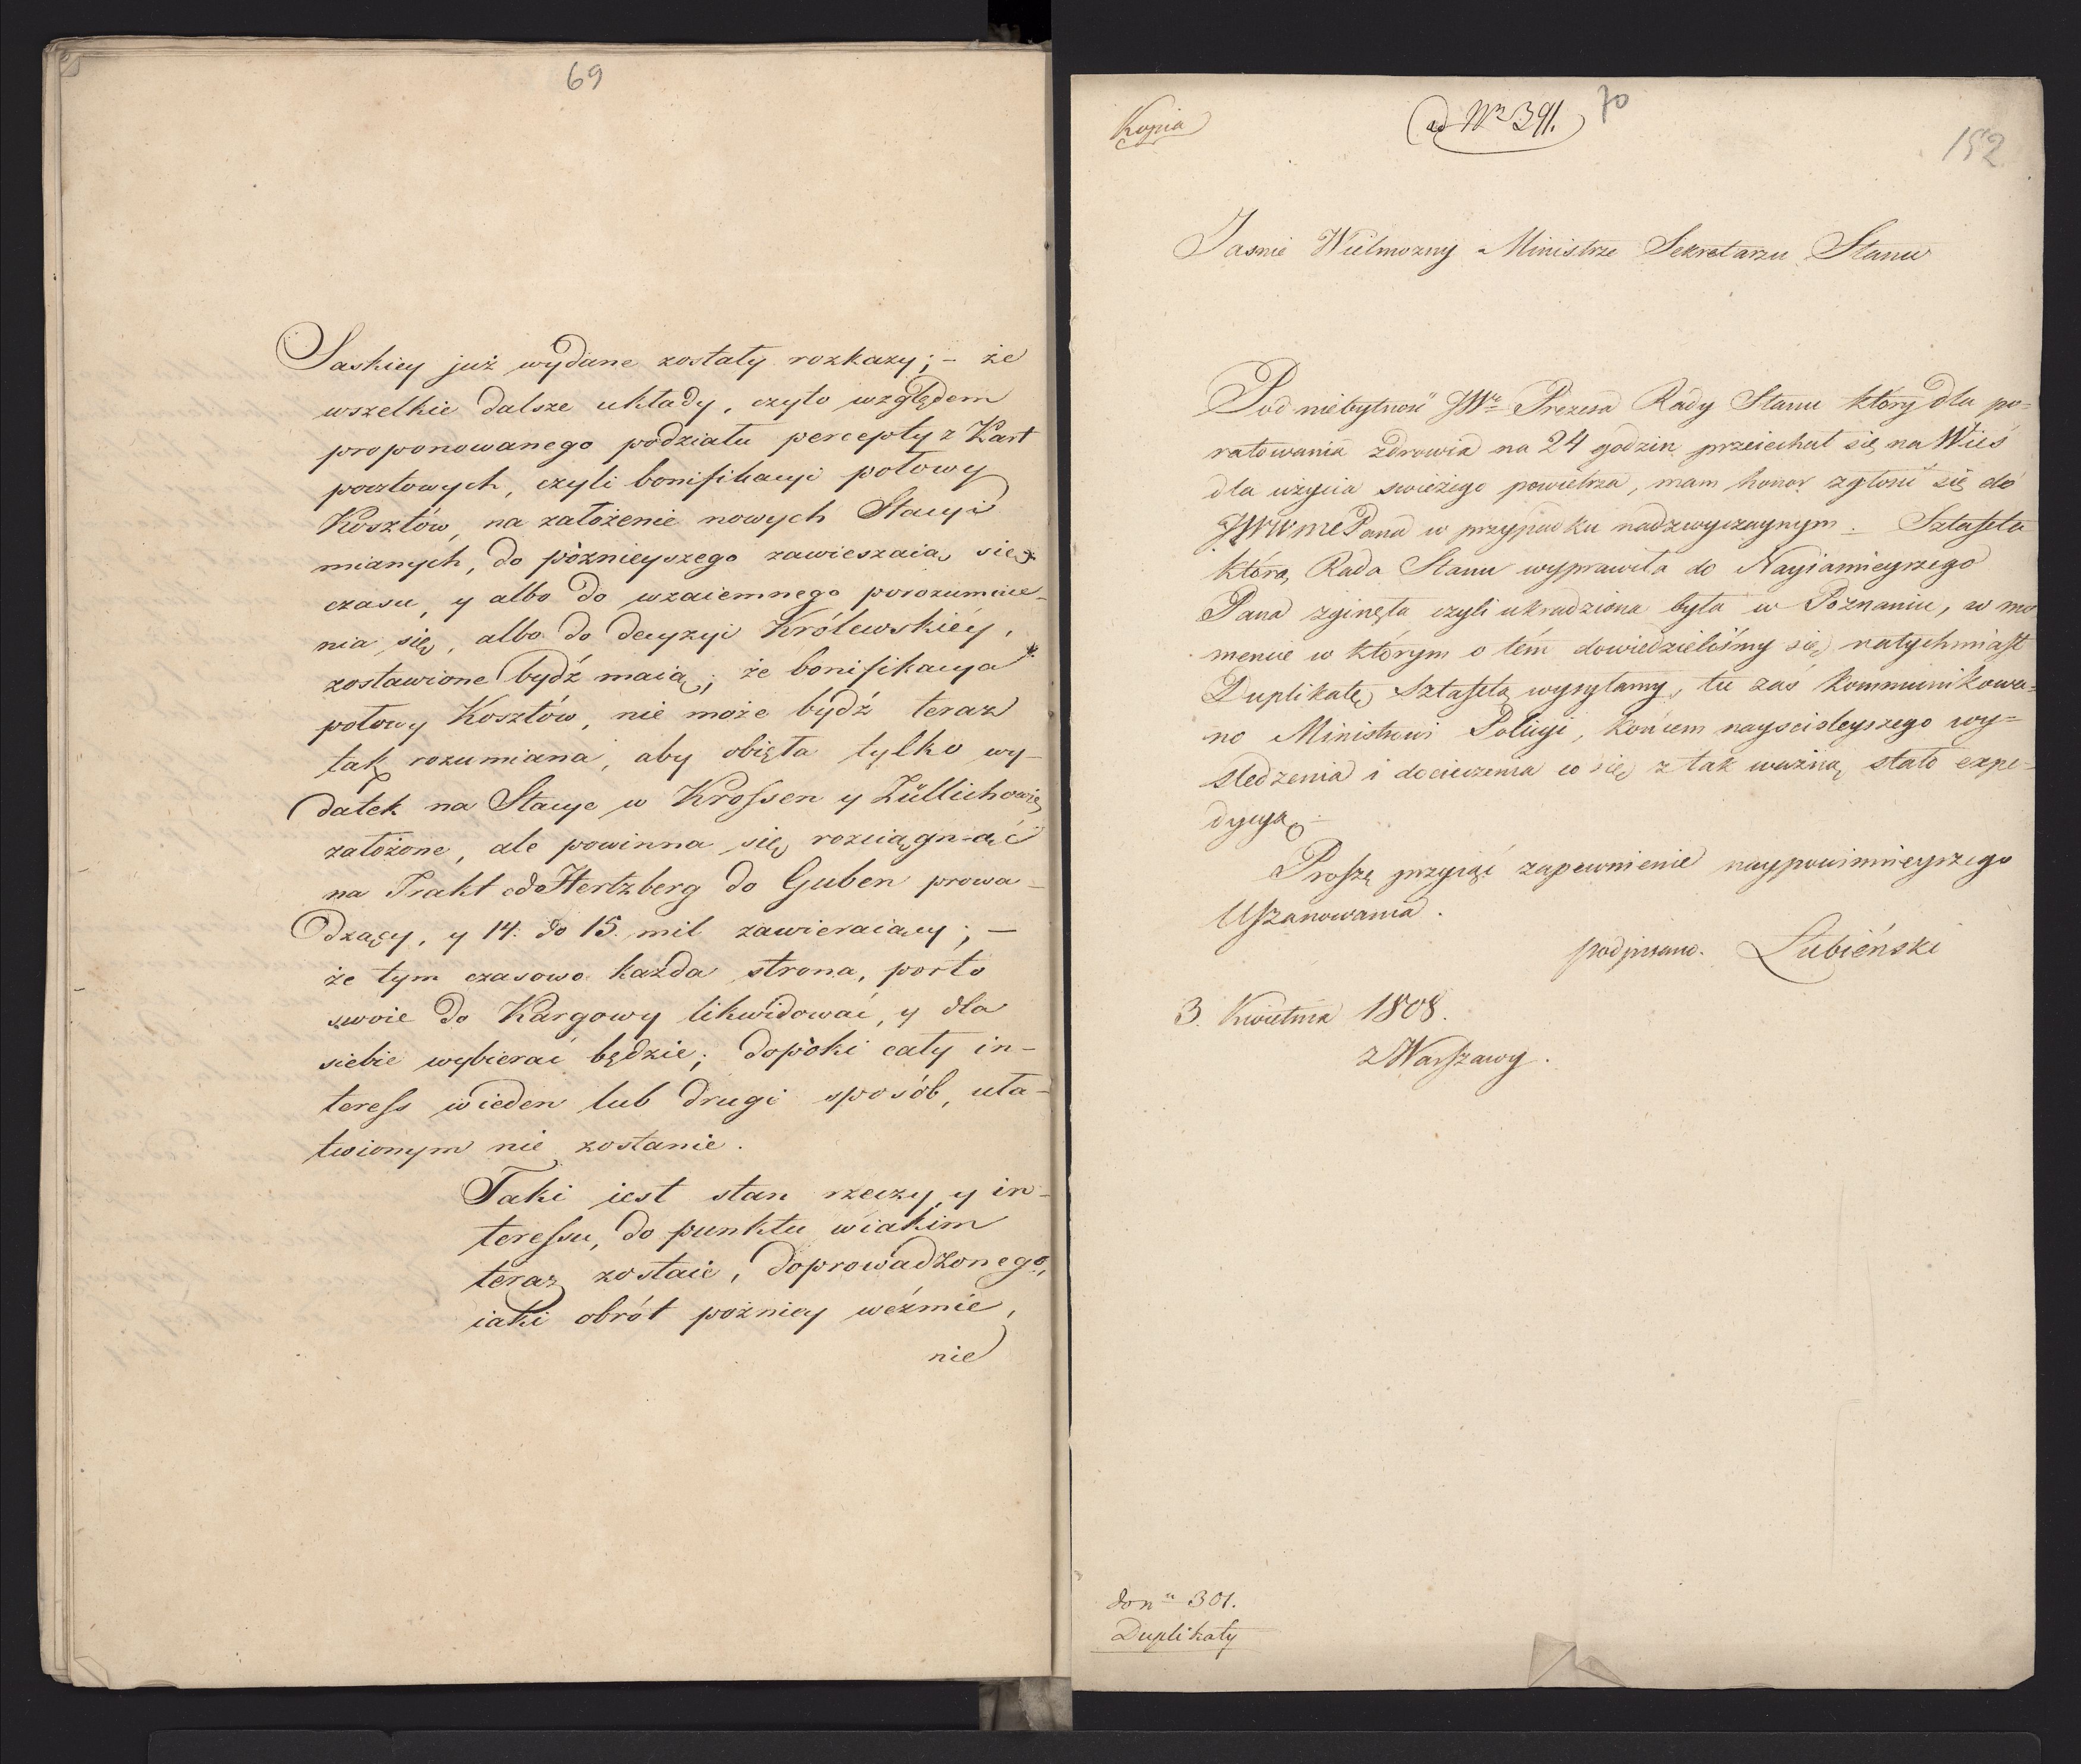 69
Saskiey już wydane zostały rozkazy; – że
wszelkie dalsze układy, czyto względem
proponowanego podziału percepty z Kart
pocztowych, czyli bonifikacyi połowy
Kosztów, na założenie nowych Stacyi
mianych, do poznieyszego zawieszaią się
czasu, y albo do wzaiemnego porozumie-
nia się, albo do decyzyi Królewskiéy,
zostawione bydź maią; że bonifikacya
połowy Kosztów, nie może bydź teraz
tak rozumiana, aby obięła tylko wy-
datek na Stacye w Krofsen y Züllichowie
założone, ale powinna się rozciągnąć
na Trakt od Hertzberg do Guben prowa-
dzący, y 14. do 15. mil zawieraiący; –
że tym czasowo każda strona, porto
swoie do Kargowy likwidować, y dla
siebie wybierać będzie; dopóki cały in-
terefs wieden lub drugi sposób, uła-
twionym nie zostanie.
Taki iest stan rzeczy y in-
terefsu, do punktu wiakim
teraz zostaie, doprowadzonego,
iaki obrót pozniey weźmie,
nie
Kopia
ad Nr 391.
70
152
Jasnie Wielmozny Ministrze Sekretarzu Stanu
Pod niebytność JWo Prezesa Rady Stanu który dla po=
ratowania zdrowia na 24 godzin przeiechał się na Wieś
dla użycia swieżego powietrza, mam honor zgłosić się do
JWWme Pana w przypadku nadzwyczaynym. Sztafeta
którą Rada Stanu wyprawiła do Nayiaśnieyszego
Pana zginęła czyli ukradziona była w Poznaniu, w mo
mencie w którym o tém dowiedzieliśmy się natychmiast
Duplikatę Sztafetą wysyłamy, tu zaś kommunikowa=
no Ministrowi Policyi, końcem nayscisleyszego wy=
sledzenia i docieczenia co się z tak ważną stało expe=
dycyą.
Proszę przyiąć zapewnienie naypowinnieyszego
Uszanowania.
podpisano. Łubieński
3. Kwietnia 1808.
z Warszawy.
do nru 301.
Duplikaty